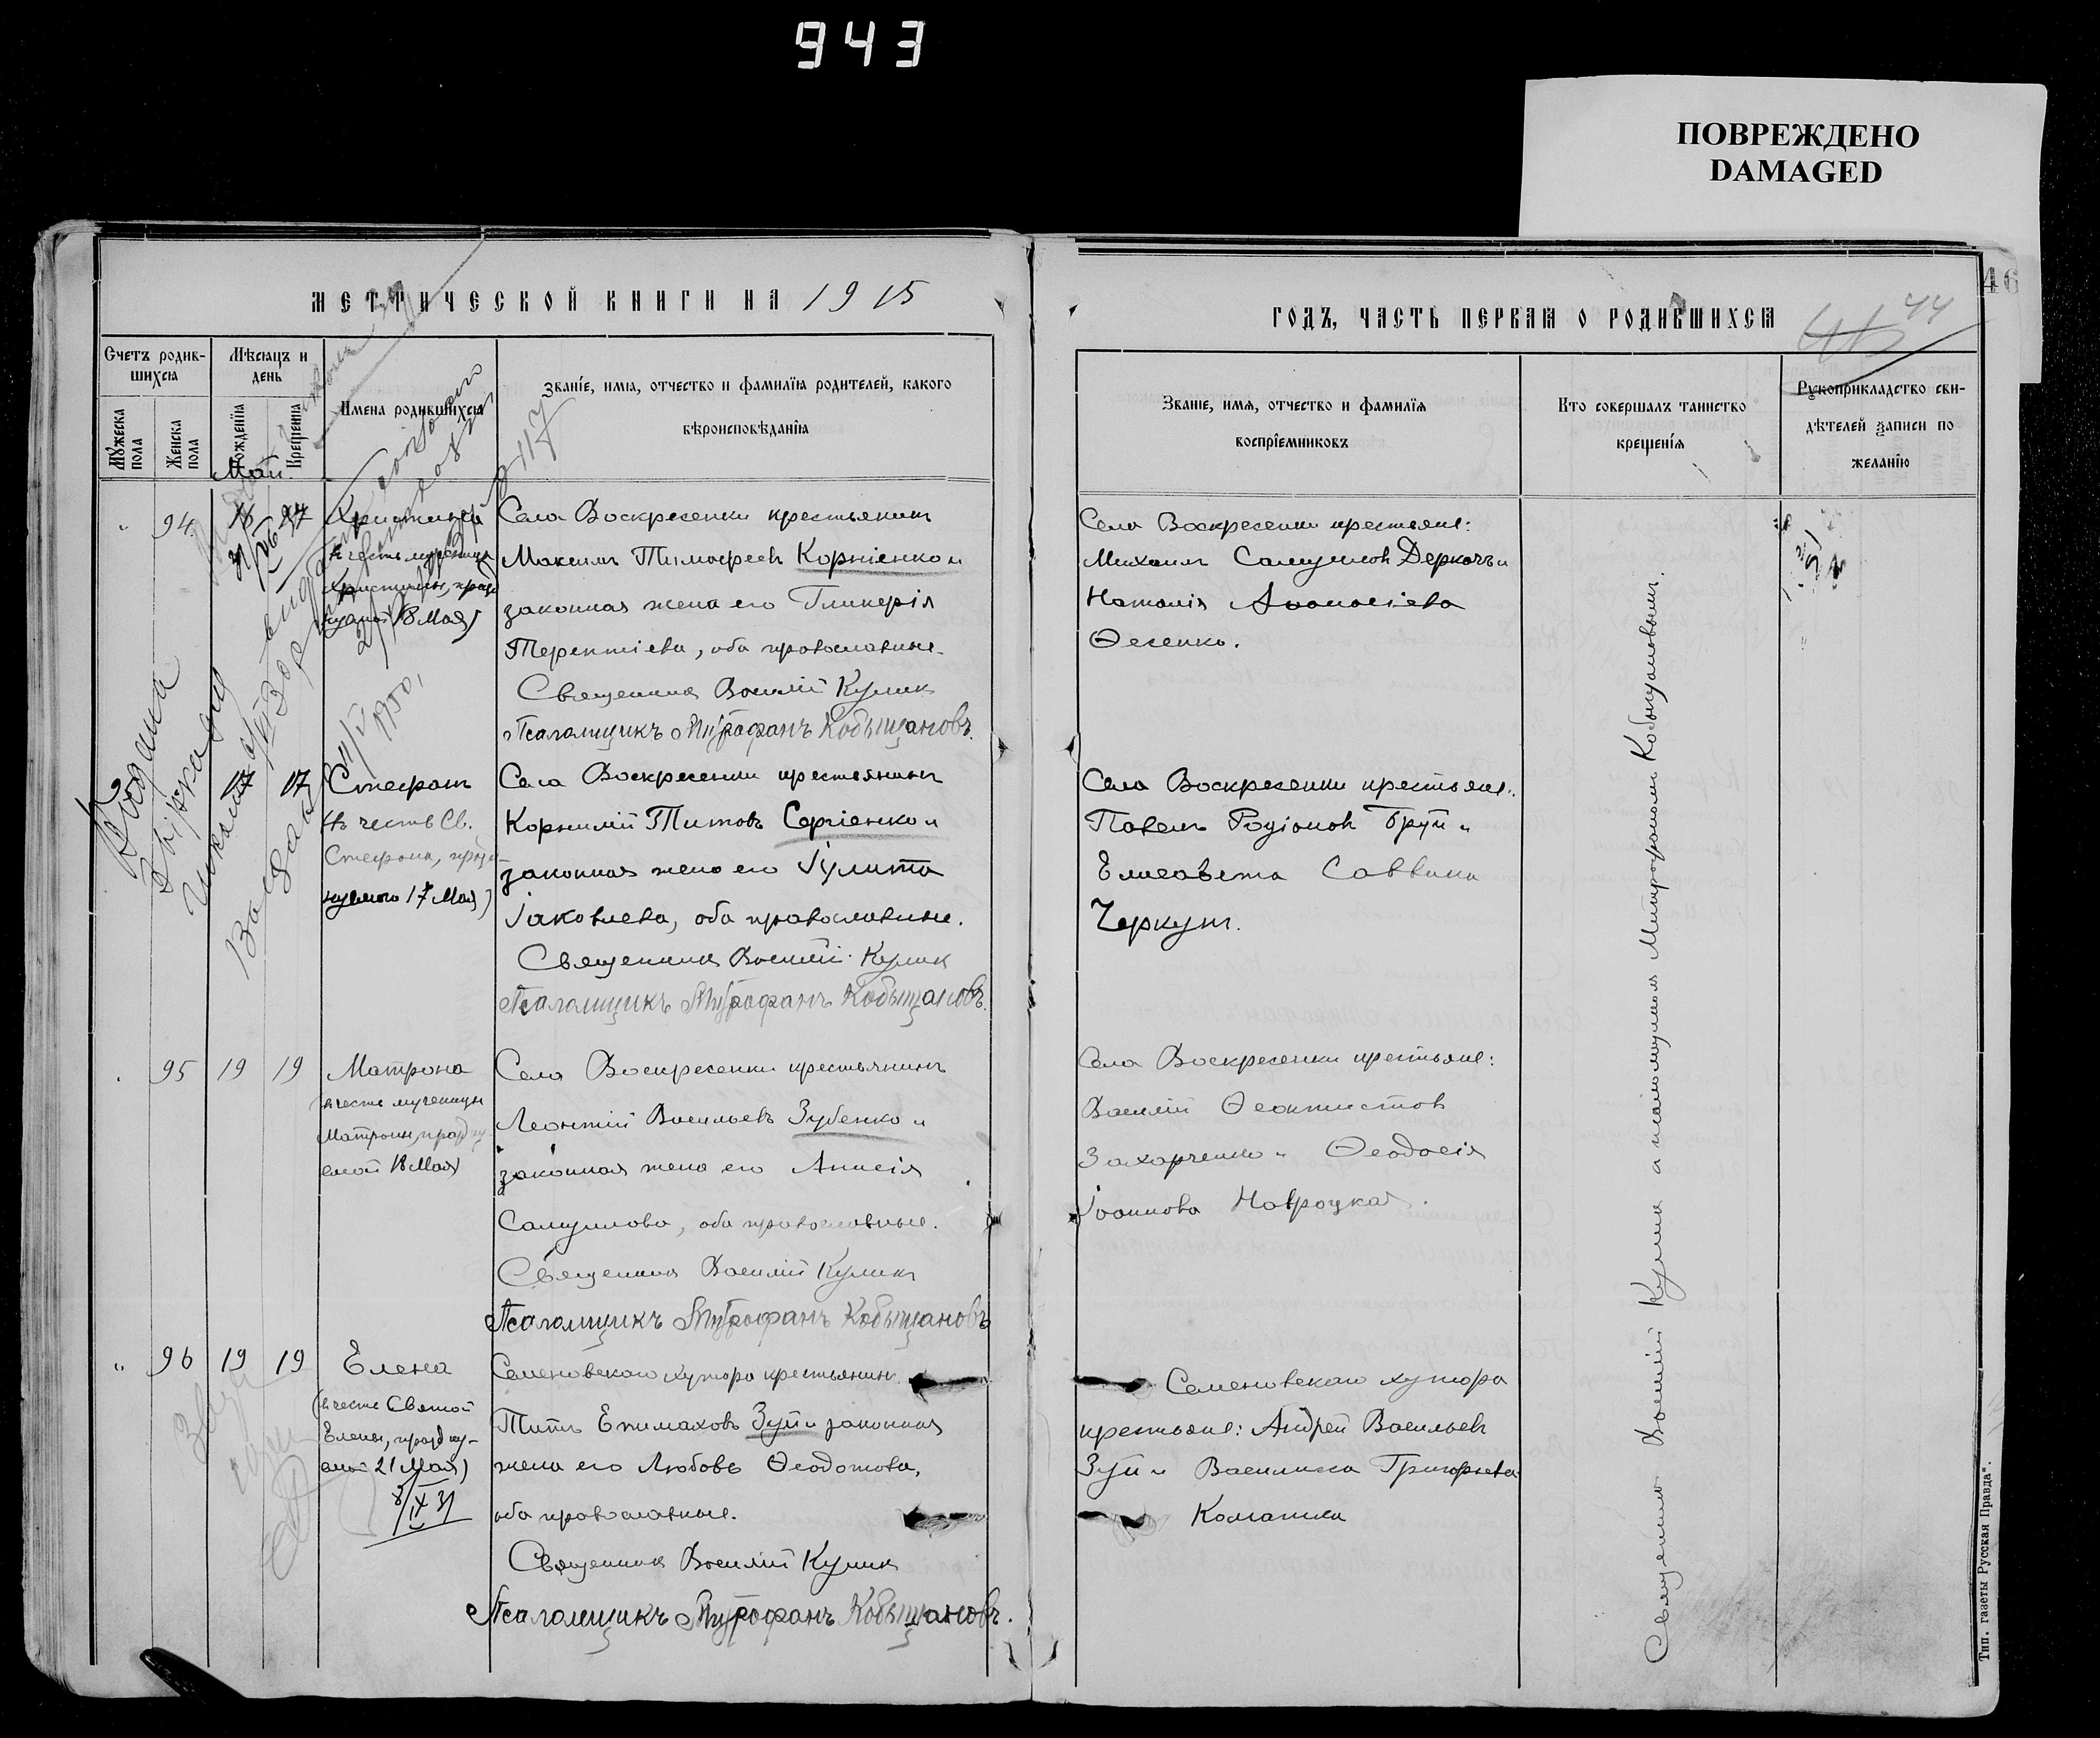 943
ПОВРЕЖДЕНО
DAMAGED
46
МЕТРИЧЕСКОЙ КНИГИ НА 1915
ГОДЪ, ЧАСТЬ ПЕРВАЯ О РОДИВШИХСЯ
44
Счетъ родив-
шихся
Мѣсяцъ и
день
Мужеска пола
Женска пола
Рожденія
Крещенія
Имена родившихся
Званіе, имя, отчество и фамилія родителей, какого
вѣроисповѣданія
Званіе, имя, отчество и фамилія
воспріемниковъ
Кто совершалъ таинство
крещенія
Рукоприкладство сви-
дѣтелей записи по
желанію
Май.
117
„ 94
Христина
въ честь мученицы
Христины, празд
18 Мая)
Села Воскресенки крестьянинъ
Максимъ Тимофеевъ Корніенко и
законная жена его Гликерія
Терентіева, оба православные.
Священникъ Василій Куликъ
Псаломщикъ Митрофанъ Кобыщановъ.
Села Воскресенки крестьяне:
Михаилъ Самуиловъ Деркачъ и
Наталія Аѳанасіева
Ѳесенко.
1950,
17 17
Стефанъ
въ честь Св.
Стефана, празд
нуемаго 17 Мая)
Села Воскресенки крестьянинъ
Корнилій Титовъ Сергіенко и
законная жена его Іулита
Іаковлева, оба православные.
Священникъ Василій Куликъ
Псаломщикъ Митрофанъ Кобыщановъ.
Села Воскресенки крестьяне:
Павелъ Родіоновъ Бруй и
Елисавета Саввина
Черкунъ.
95 19 19
Матрона
(въ честь мученицы
Матроны, праздну
емой 18 Мая)
Села Воскресенки крестьянинъ
Леонтій Васильевъ Зубенко и
законная жена его Анисія
Самуилова, оба православные.
Священникъ Василій Куликъ
Псаломщикъ Митрофанъ Кобыщановъ
Села Воскресенки крестьяне:
Василій Ѳеоктистовъ
Захарченко и Ѳеодосія
Іоаннова Навроцкая.
„ 96 19 19
Елена
(въ честь Святой
Елены, праздну-
емой 21 Мая)
8/IX 31
Семеновскаго хутора крестьянинъ
Титъ Епимаховъ Зуй и законная
жена его Любовь Ѳеодотова,
оба православные.
Священникъ Василій Куликъ
Псаломщикъ Митрофанъ Кобыщановъ.
Семеновскаго хутора
крестьяне: Андрей Васильевъ
Зуй и Василиса Григорьева
Священникъ Василій Куликъ и псаломщикомъ Митрофаномъ Кобыщановымъ.
Тип. газеты Русская Правда".